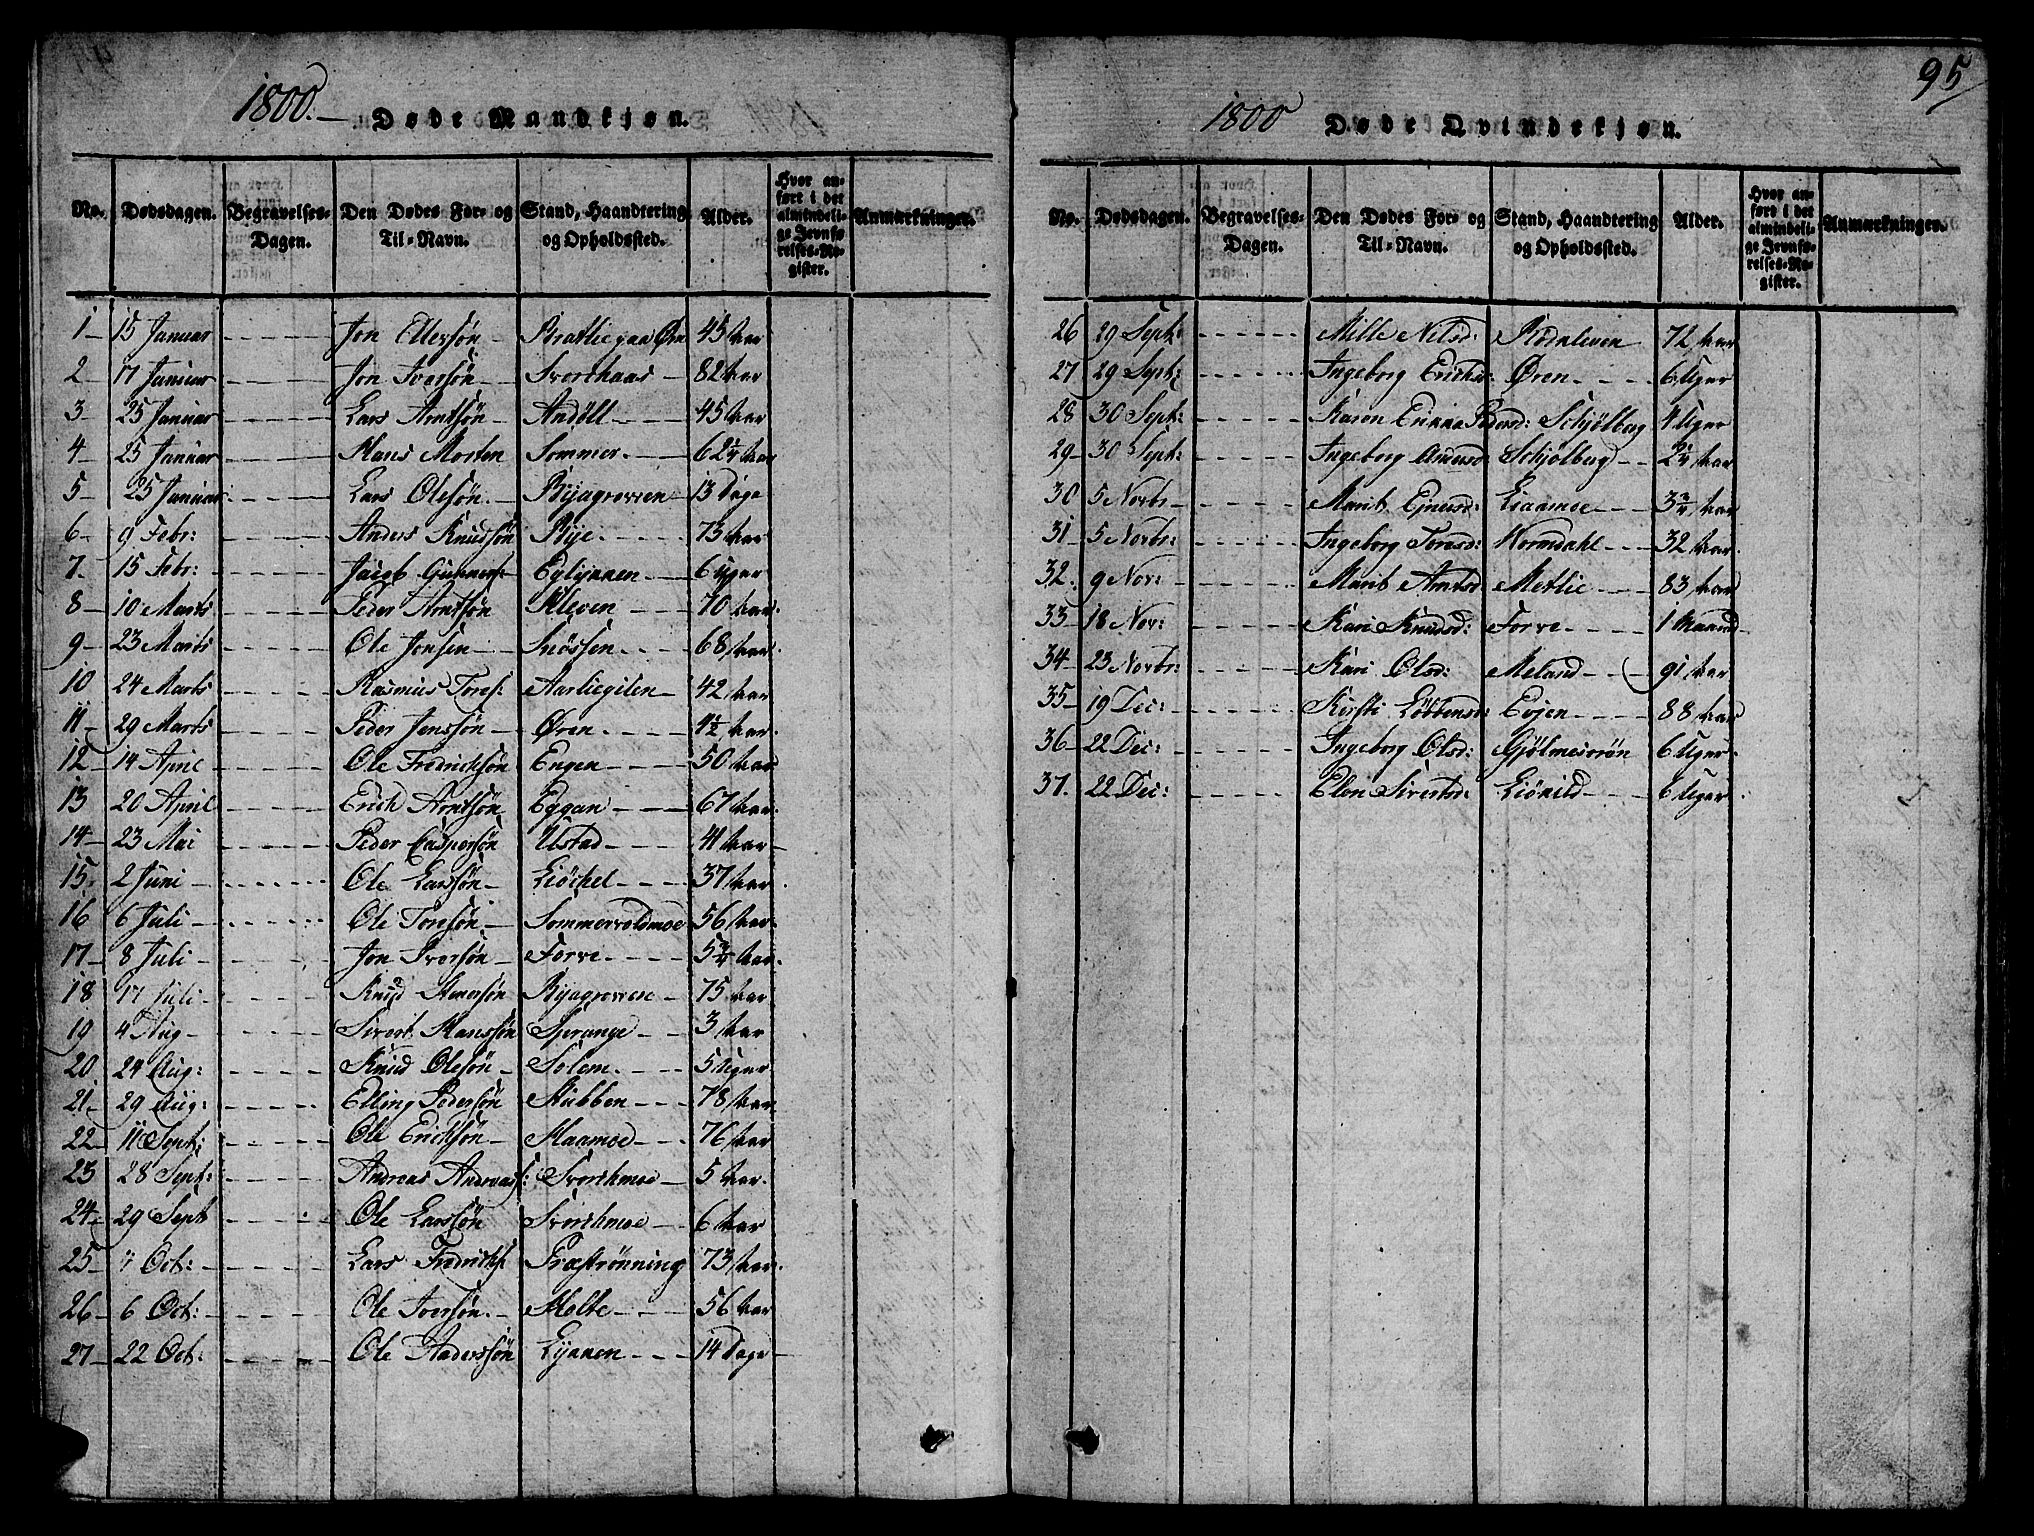 95
1800. Døde Mandkjøn.
No. Dødsdagen. Begravelses-Dagen. Den Dødes For- og Til-Navn. Stand, Haandtering og Opholdssted. Alder. Hvor anført i det almindelige Jevnførelses-Register. Anmærkninger.
1 15 Januar Jon Ellersøn Bratlie paa Øen 45 Aar
2 17 Januar Jon Iversøn Svorkaas 82 Aar
3 25 Januar Lars Arntsøn 45 Aar
4 25 Januar Hans Morten Sommer 62 1/4 Aar
5 25 Januar Lars Olesøn Byagrovven 13 Dage
6 9 Febr: Anders Knudsøn Bye 73 Aar
7 15 Febr: Jacob Gunners: 6 Uger
8 10 Marts Peder Arntsøn Kleven 70 Aar
9 23 Marts Ole Jonsen Snössen 68 Aar
10 24 Marts Rasmus Tores: Aarliegilen 42 Aar
11 29 Marts Peder Jonssøn Øren 4 1/2 Aar
12 14 April Ole Fredricksøn Engen 50 Aar
13 20 April Erich Arntsøn Eggan 67 Aar
14 23 Mai Peder Caspersøn Ustad 41 Aar
15 2 Juni Ole Larssøn 37 Aar
16 6 Juli Ole Toresøn Sommervoldmoe 56 Aar
17 8 Juli Jon Iversøn Forve 5 3/4 Aar
18 17 Juli Knud Byagrovven 75 Aar
19 4 Aug Sivert Hanssøn Sprange 3 Aar
20 24 Aug: Knud Olesøn Solem 5 Uger
21 29 Aug: Elling Pedersøn Stubben 78 Aar
22 11 Sept: Ole Ericksøn 76 Aar
23 28 Sept: Andreas Andreass: Svorchmoe 5 Aar
24 29 Sept Ole Larssøn Svorchmoe 6 Aar
25 Oct: Lars Fredricks: Præströnning 73 Aar
26 6 Oct: Ole Iversøn Holte 56 Aar
27 22 Oct: Ole Anderssøn 14 Dage
1800 Døde Qvindekjøn.
No. Dødsdagen. Begravelses-Dagen. Den Dødes For- og Til-Navn. Stand, Haandtering og Opholdssted. Alder. Hvor anført i det almindelige Jevnførelses-Register. Anmærkninger.
26 29 Sept: Mille Nilsd: 72 Aar
27 29 Sept: Ingeborg Erichsd: Øren 6 Uger
28 30 Sept: Karen Pedersd: Schjølberg 4 Uger
29 30 Sept: Ingeborg Schjølberg 2 3/4 Aar
30 5 Novbr Marit 3 3/4 Aar
31 5 Novbr: Ingeborg Toresd: Hormdahl 32 Aar
32 9 Nov: Marit Arntsd 83 Aar
33 18 Nov: Kari Knudsd: Forve 1 Maaned
34 23 Novbr: Kari Olsd: Meland 91 Aar
35 19 Dec: Kirsti Evjen 88 Aar
36 22 Dec: Ingeborg Olsd: Gjølmesørøn 6 Uger
37 22 Dec: Elen Sivertsd: 6 Uger